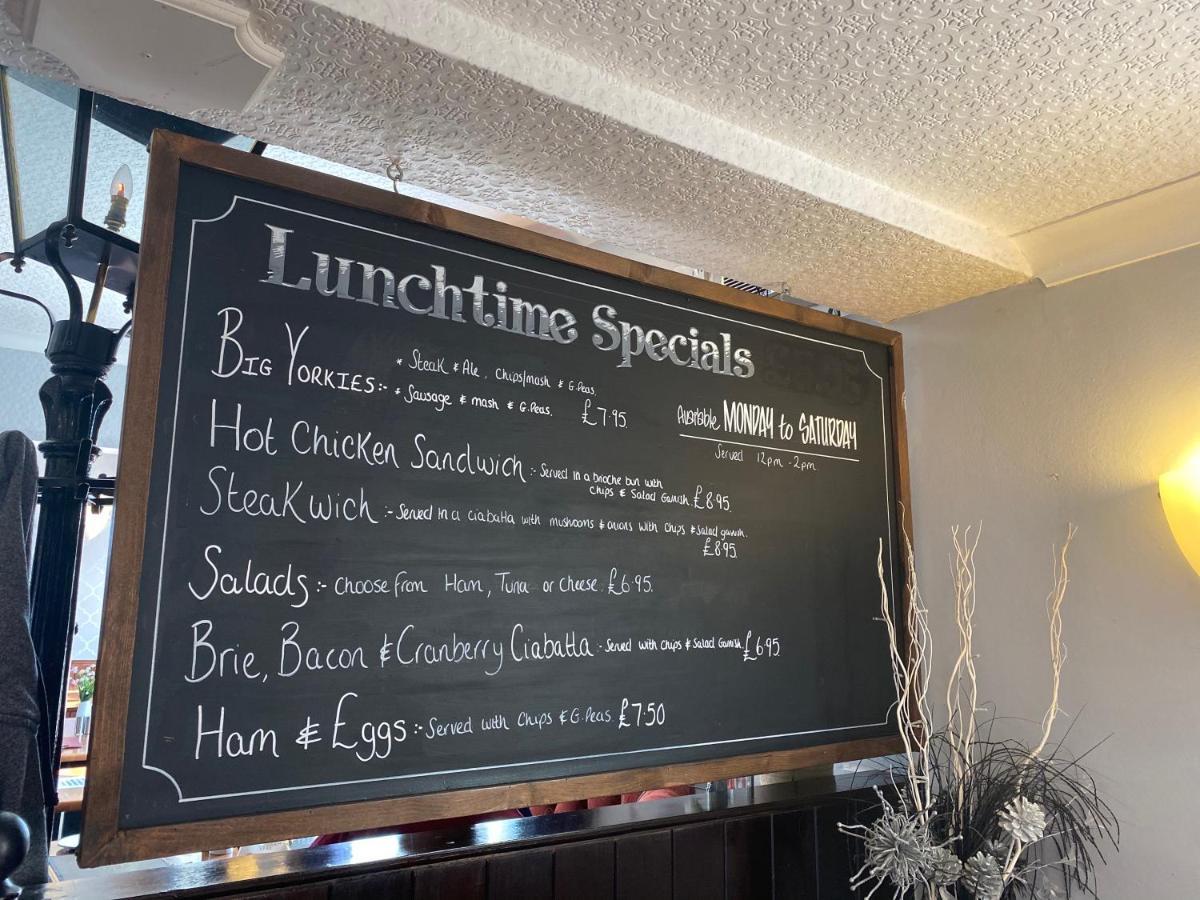 Lunchtime Specials
BIG YORKIES:- * Steak & Ale. Chips/mash & G.Peas.
* Sausage & mash & G.Peas. £7.95
Available MONDAY to SATURDAY
Served 12pm - 2pm
Hot Chicken Sandwich:- Served in a brioche bun with
chips & Salad Garnish. £8.95.
Steakwich:- Served in a ciabatta with mushrooms & onions with chips & salad garnish.
£8.95
Salads:- choose from Ham, Tuna or cheese. £6.95.
Brie, Bacon & Cranberry Ciabatta:- Served with chips & Salad Garnish. £6.95
Ham & Eggs:- Served with Chips & G.Peas. £7.50